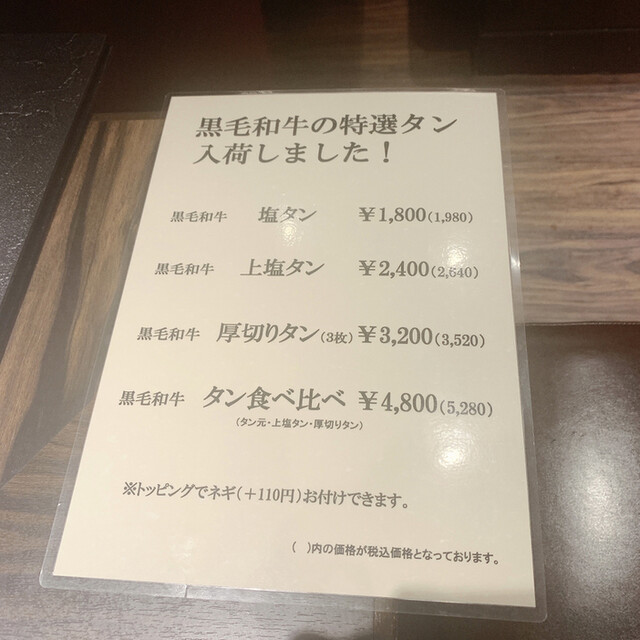 黒毛和牛の特選タン
入荷しました！
黒毛和牛 塩タン ￥1,800(1,980)
黒毛和牛 上塩タン ￥2,400(2,640)
黒毛和牛 厚切りタン(3枚) ￥3,200(3,520)
黒毛和牛 タン食べ比べ ￥4,800(5,280)
(タン元・上塩タン・厚切りタン)
※トッピングでネギ(＋110円)お付けできます。
( )内の価格が税込価格となっております。